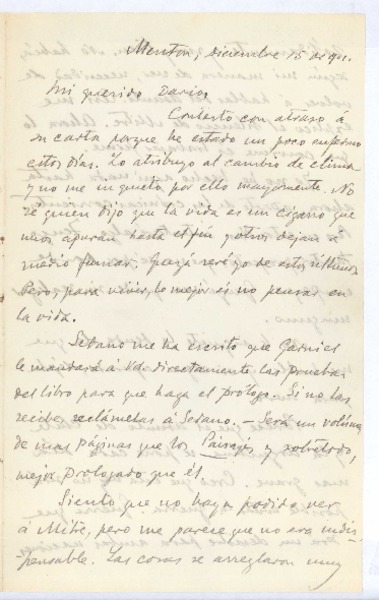 Menton, Diciembre 15 de 901.
Mi querido Darío,
Contesto con atraso a
su carta porque he estado un poco enfermo
estos días. Lo atribuyo al cambio de clima
y no me inquieto por ello mayormente. No
sé quien dijo que la vida es un cigarro que
unos apuran hasta el fin y otros dejan á
medio fumar. Quizá seré yo de estos últimos.
Pero, para vivir, lo mejor es no pensar en
la vida.
Sedano me ha escrito que Garnier
le mandará á Vd. directamente las pruebas
del libro para que haga el prólogo. Si no las
recibe, reclámelas á Sedano. — Será un volúmen
de mas páginas que los Paisajes y, sobretodo,
mejor prologado que él.
Siento que no haya podido ver
á Mitre, pero me parece que no era indis-
pensable. Las cosas se arreglaron muy